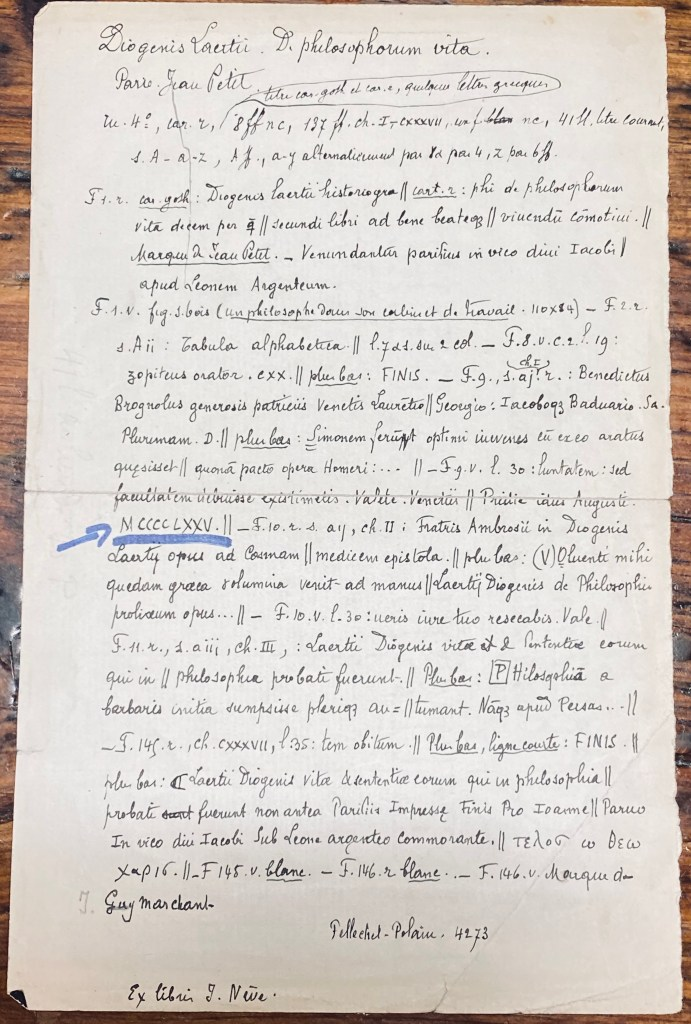 Diogenis Laertii. D. philosophorum vita.
Paris. Jean Petit
titre car. goth et car. r, quelques lettres grecques
In. 4º, car. r, 8 ff nc, 137 ff. ch. I-CXXXVII, un f. nc, 41 ll. titre courant,
s. A - a-z, A ff., a-y alternativement par 8 & par 4, z par 6 ff.
F 1. r. car. goth: Diogenis laertii historiogra || cart. r: phi de philosophorum
vitâ decem per q̄ || secundi libri ad bene beateqz || viuendū cōmotiui. ||
Marque de Jean Petit. - Venundantur parisius in vico diui Iacobi ||
apud Leonem Argenteum.
F. 1. v. fig. s. bois (un philosophe dans son cabinet de travail. 110x84) - F. 2. r.
s. A ii : Tabula alphabetica. || l. 7 & s. sur 2 col. - F. 8. v. c. 2. l. 19 :
zopirus orator. cxx. || plus bas: FINIS. - F. 9., s. aj. r. : Benedictus
ch. I
Brognolus generosis patriciis Venetis Lauretio || Georgio: Iacoboqz Baduario. Sa.
Plurimam. D. || plus bas: Simonem optimi iuvenes cū ex eo aratus
quęsisset || quonā pacto opera Homeri: ... || - F. 9. v. l. 30 : luntatem: sed
facultatem debuisse existimetis. Valete. Venetiis || Pridie idus Augusti.
MCCCCLXXV. || - F. 10. r. s. ay, ch. II : Fratris Ambrosii in Diogenis
Laertij opus ad Cosmam || medicem epistola. || plus bas: (V) Oluenti mihi
quedam græca volumina venit ad manus || Laertij Diogenis de Philosophis
prolixum opus... || - F. 10. v. l. 30 : ueris iure tuo resecabis. Vale. ||
F. 11. r., s. aiii, ch. III, : Laertii Diogenis vitæ & Sententiæ eorum
qui in || philosophia probati fuerunt. || Plus bas: [P] Hilosophiā a
barbaris initia sumpsisse pleriqz au= || tumant. Nāqz apud Persas... ||
- F. 145. r., ch. CXXXVII, l. 35 : tem obitum. || Plus bas, ligne courte: FINIS. ||
plus bas: ₵ Laertii Diogenis vitæ & sententiæ eorum qui in philosophia ||
probati sunt fuerunt non antea Parisiis Impressę Finis Pro Ioanne || Paruo
In vico diui Iacobi Sub Leone argenteo commorante. || τελοσ ω θεω
χαρισ. || - F 145. v. blanc. - F. 146. r blanc. - F. 146. v. Marque de
J. Guy marchant
Pellechet-Polain. 4273
Ex libris J. Nève.